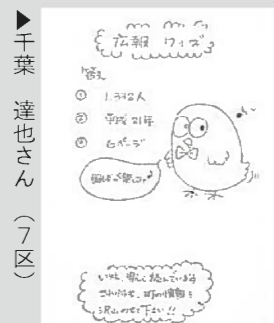 ▶千葉 達也さん (7区)
広報 クイズ
答え
① 1.392人
② 平成21年
③ 6ページ
いつも 楽しく 読んでいます
これからも、町の情報を
沢山のせて下さい!!